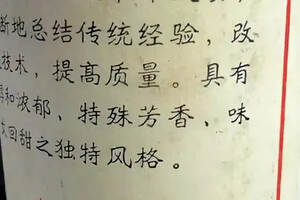 断地总结传统经验，改
技术，提高质量。具有
和浓郁、特殊芳香、味
回甜之独特风格。